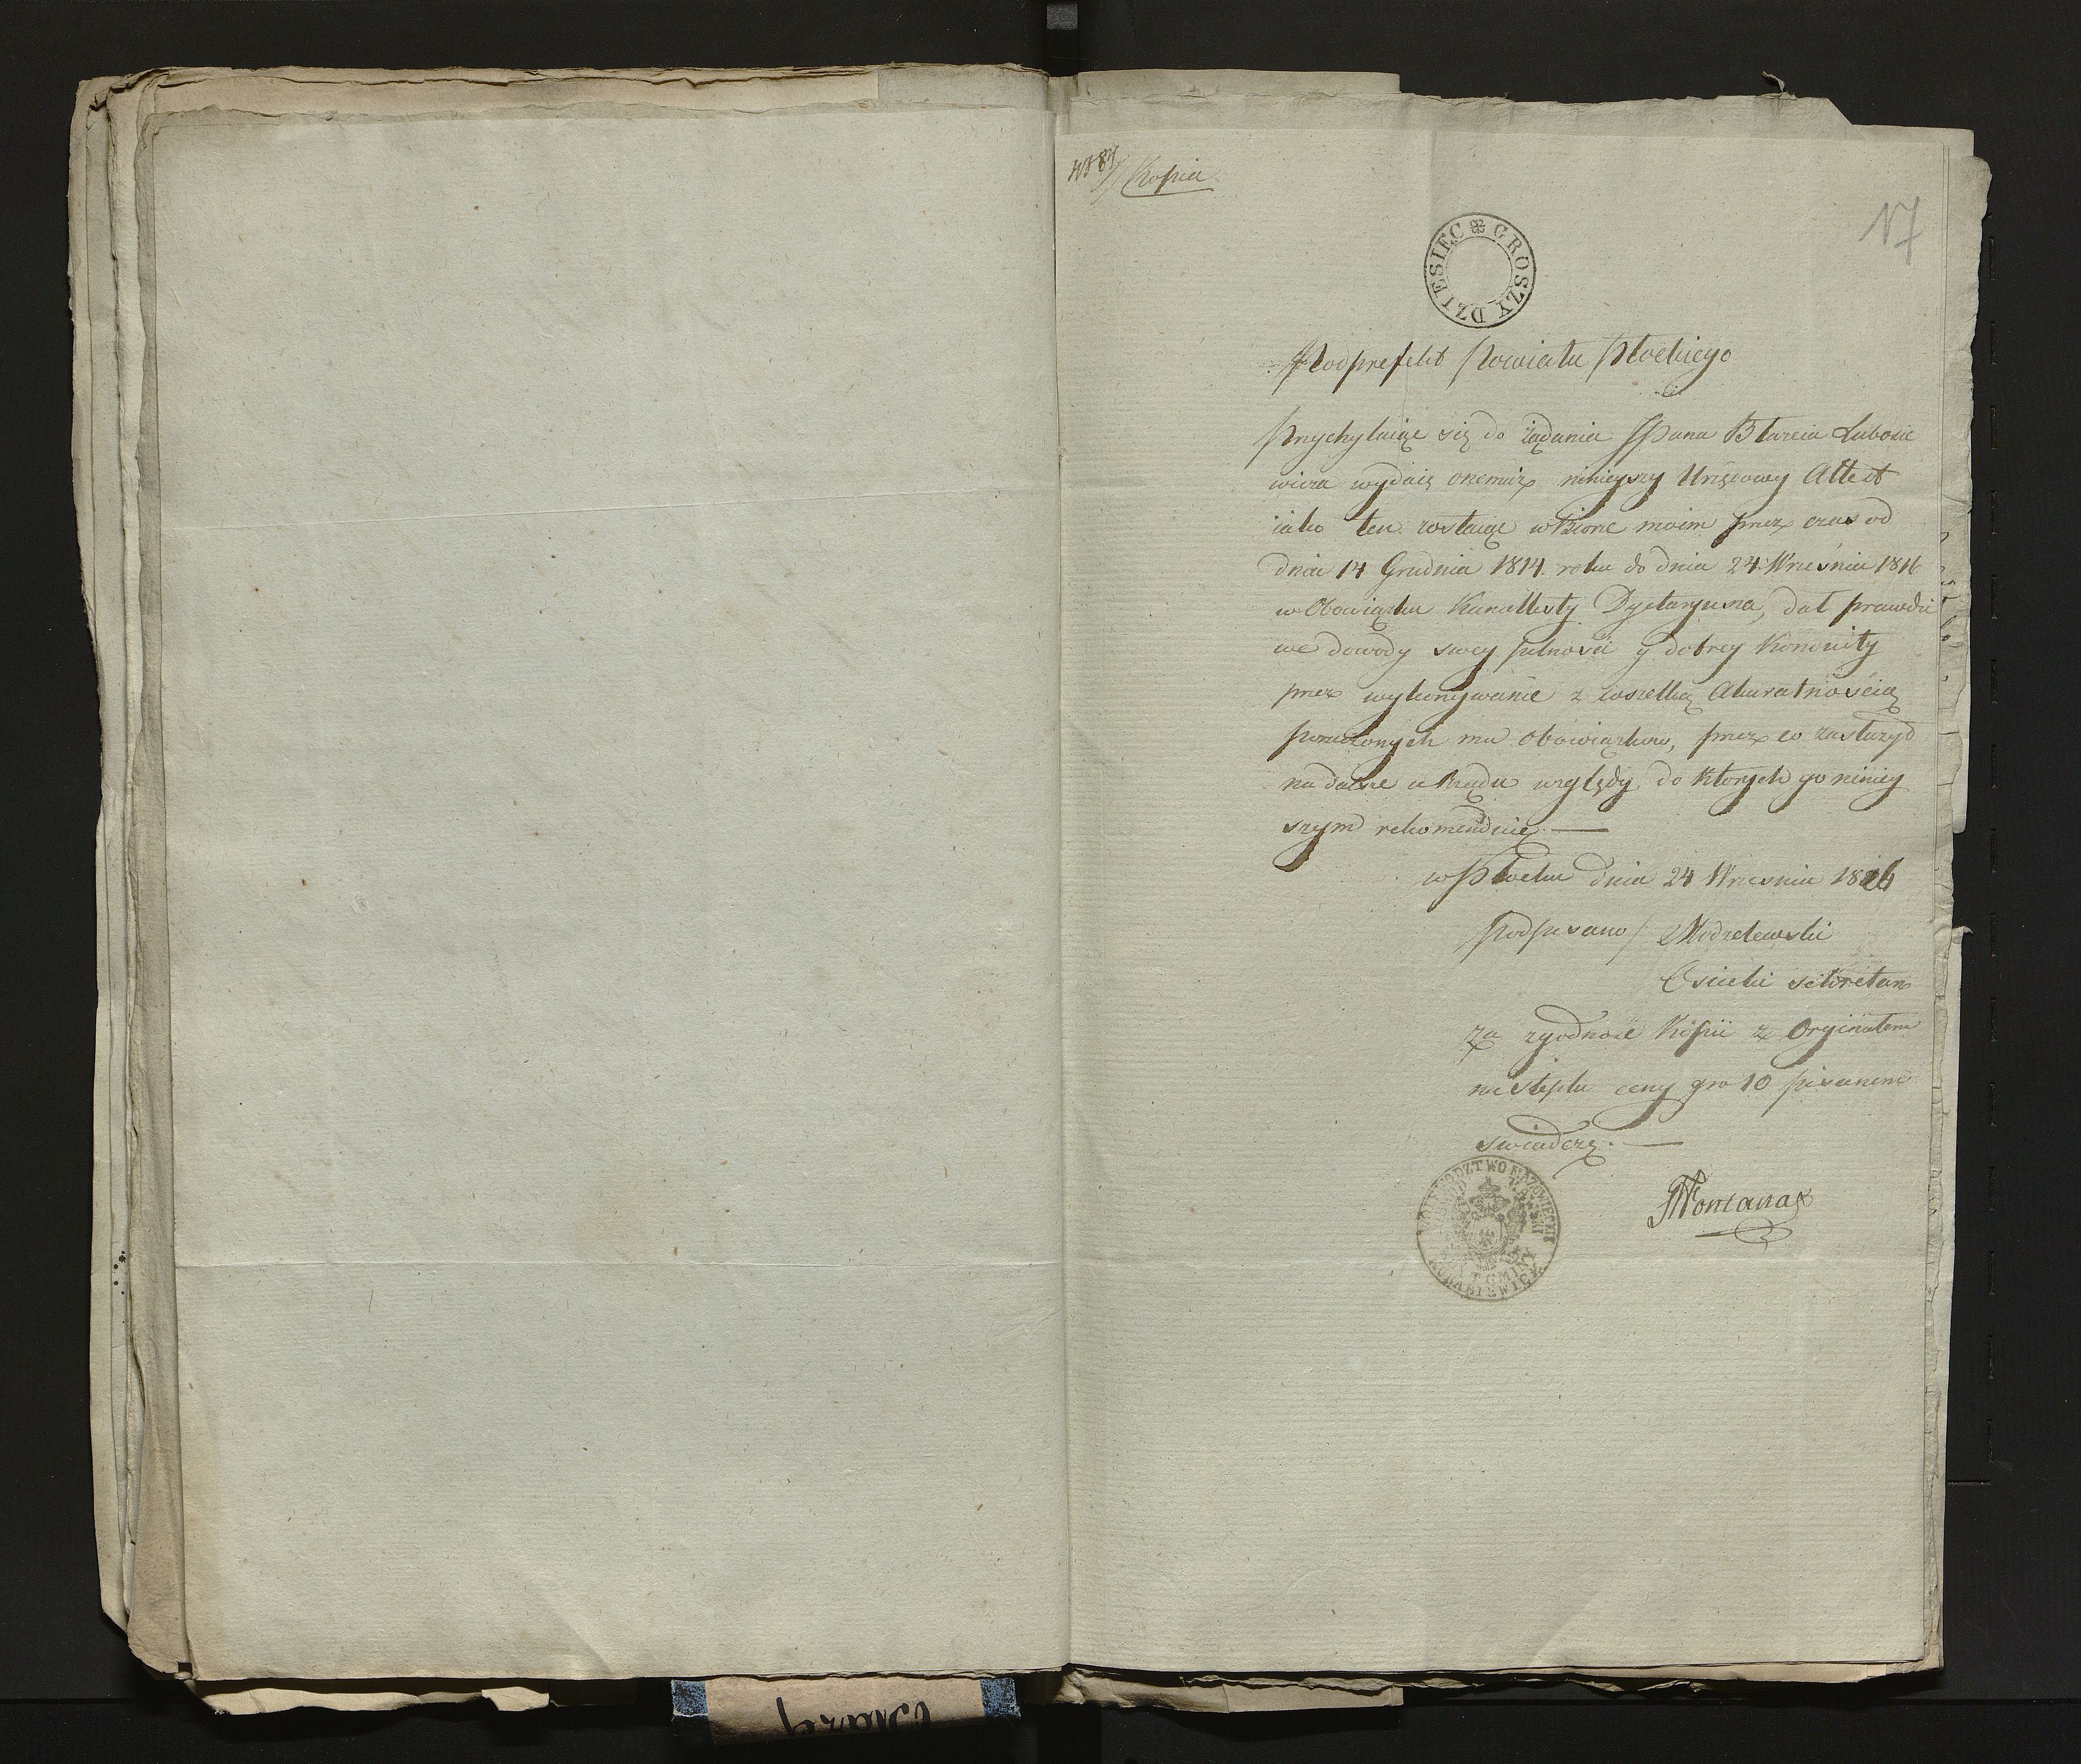 Kopia
17
GROSZY DZIESIĘC
Podprefekt Powiatu Płockiego
Przychylaiąc się do żądania JPana Błażeia Lubosie
wicza wydaię onemuż ninieyszy Urzędowy Attest
iako ten zostaiąc w Biorze moim przez czas od
dnia 14 Grudnia 1814 roku do dnia 24 Wrzesnia 1816
w Obowiązku Kancellisty Dyetaryusza, dał prawdzi
we dowody swey pilności y dobrey Konduity
przez wykonywanie z wszelką Akuratnością
poruczonych mu Obowiązkow, przez co zasłużył
na dalsze u Rządu względy, do Ktorych go niniey
szym rekomenduię. —
w Płocku dnia 24 Wrzesnia 1816
Podpisano / Modzelewski
Osiecki Sekretarz
Za zgodnosc Kopii z Orginałem
na steplu ceny gro 10 pisanem
swiadczę. —
Fontana
WOIEWODZTWO MAZOWIECKIE
WOYT GMINY
KORABIEWICE